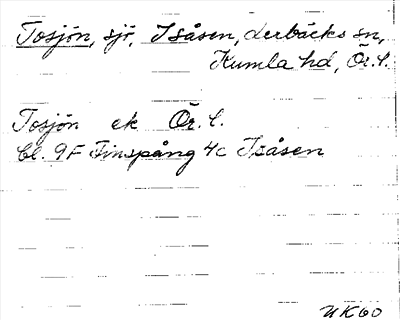 Tosjön, sjö, Isåsen, Lerbäcks sn,
Kumla hd, Ör. l.
Tosjön ek Ör. l.
bl. 9F Finspång 4c Isåsen
UK60